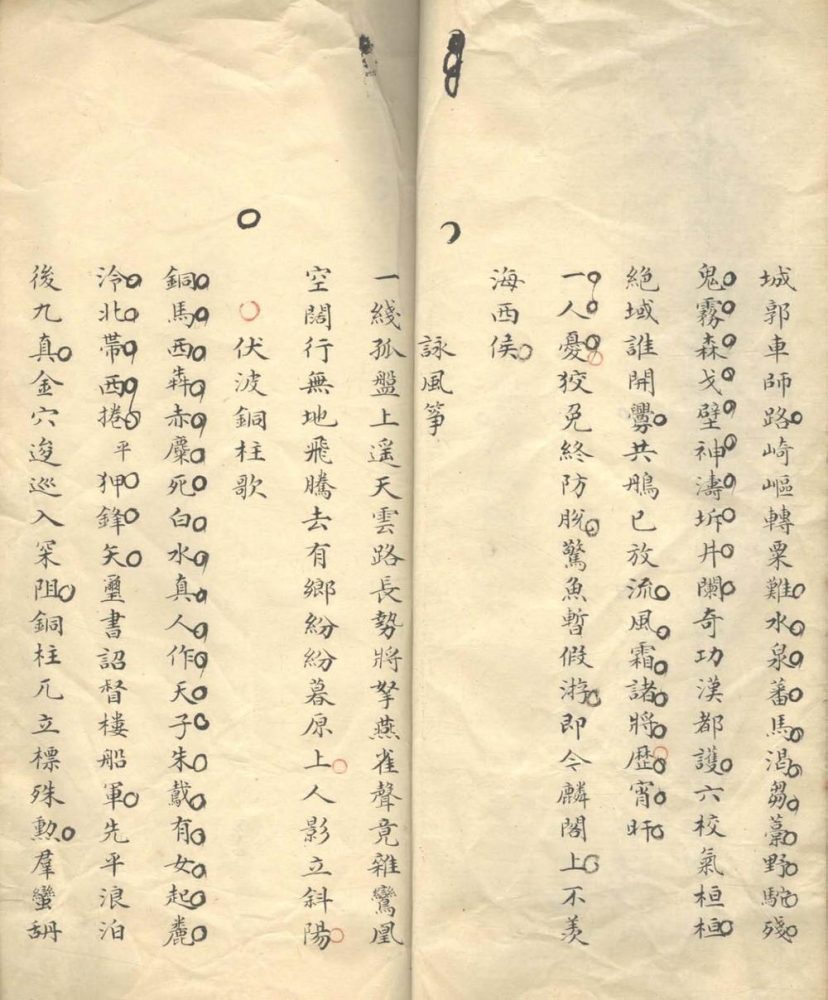 城郭車師路崎嶇轉粟難水泉蕃馬渴芻藁野駝殘
鬼霧森戈壁神濤坼井闌奇功漢都護六校氣桓桓
絶域誰開釁共鵃已放流風霜諸將歷宵旰
一人憂狡兔終防脫驚魚暫假游即令麟閣上不羨
海西侯
詠風箏
一綫孤盤上遥天雲路長勢將拏燕雀聲竟雜鸞凰
空闊行無地飛騰去有鄉紛紛暮原上人影立斜陽
伏波銅柱歌
銅馬西犇赤麋死白水真人作天子朱鳶有女起麊
泠北帶西捲平狎鋒矢璽書詔督樓船軍先平浪泊
後九真金穴逡巡入罙阻銅柱兀立標殊勲羣蠻胡